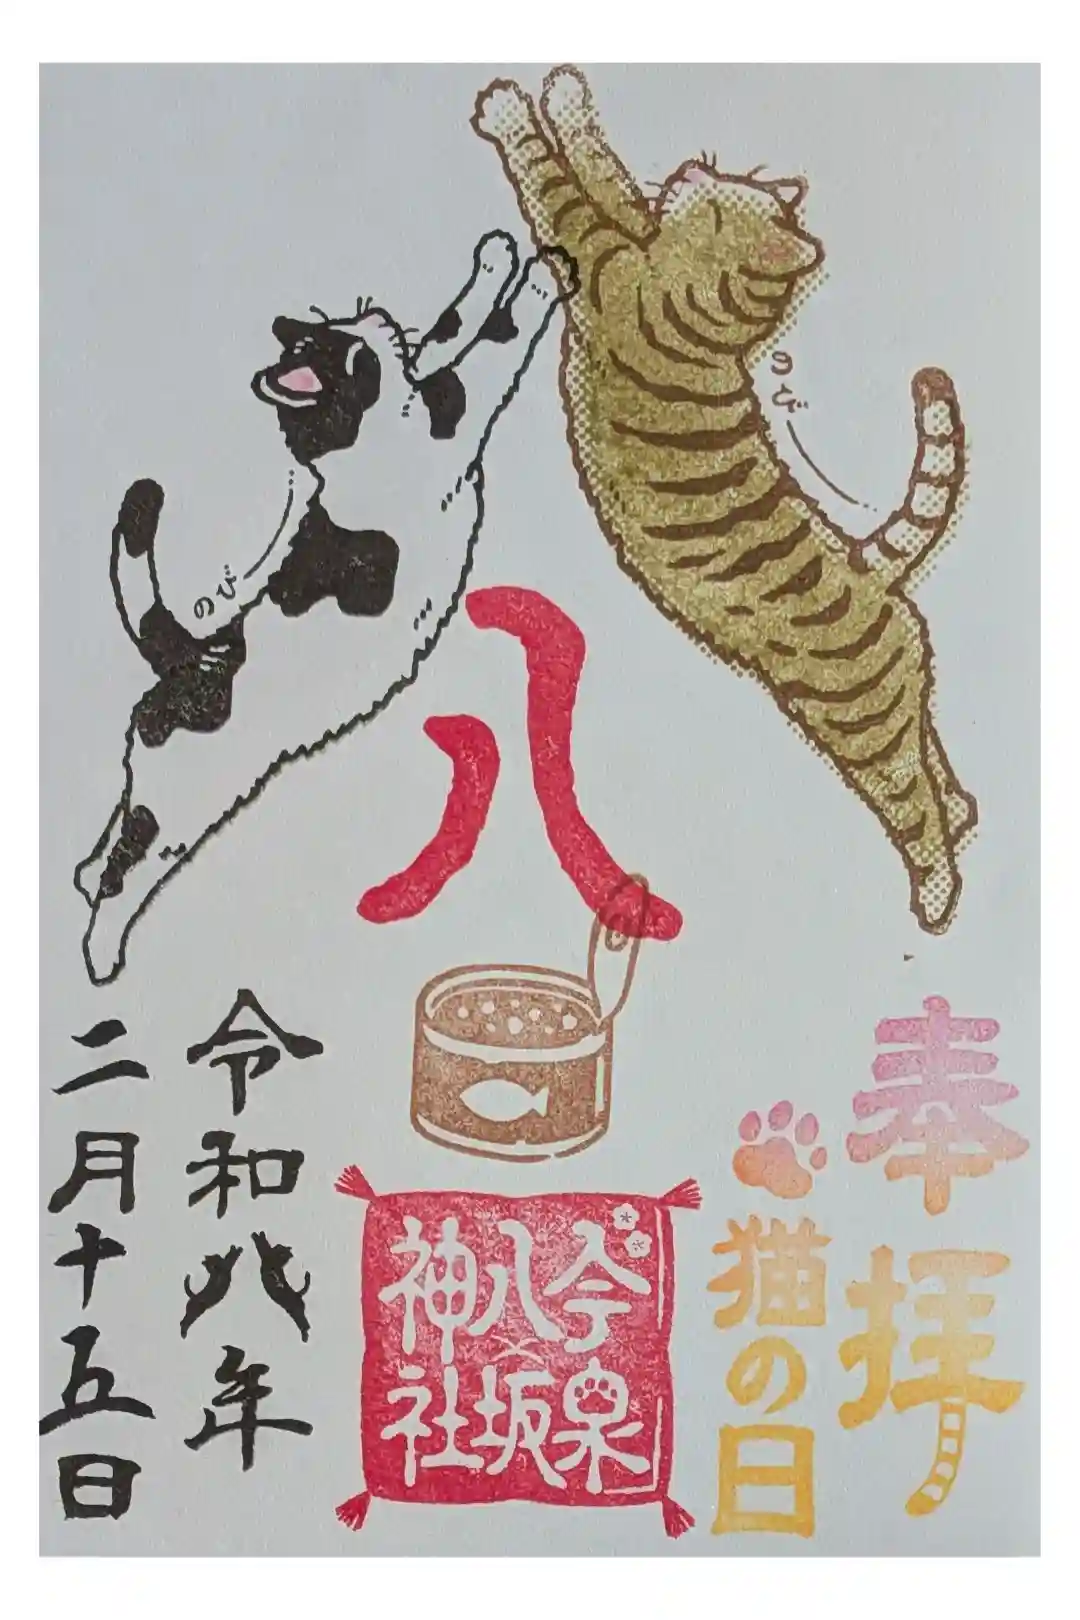 奉拝
猫の日
のび
のび
八
今泉
八坂
神社
令和八年
二月十五日